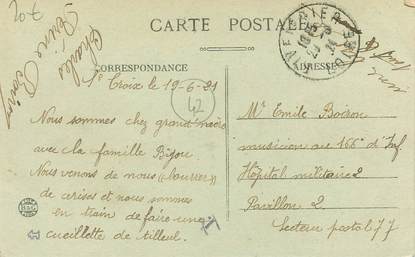 207
CARTE POSTALE
CORRESPONDANCE
ADRESSE
Charles
Ste Croix le 19-6-21
42
Nous sommes chez grand'mère
avec la famille Bijou.
Nous venons de nous "bourrer"
de cerises et nous sommes
en train de faire une
cueillette de tilleul.
Mr Emile Boiron
musicien au 166e d'Inf
Hôpital militaire 2
Pavillon 2
Secteur postal 77